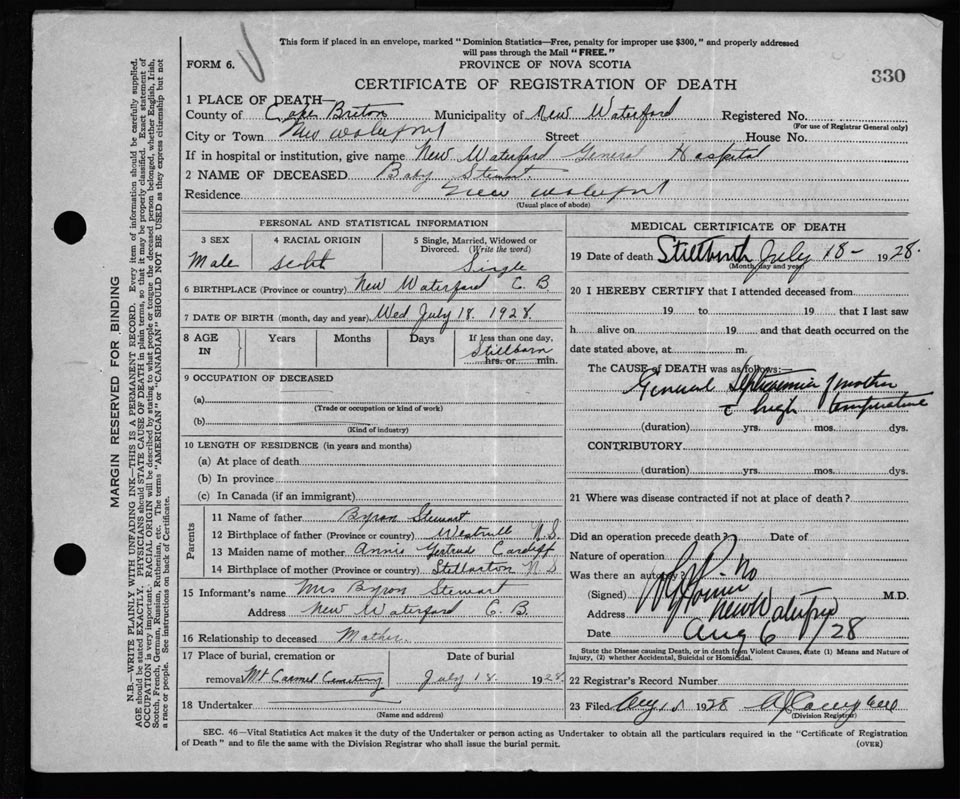 This form if placed in an envelope, marked "Dominion Statistics—Free, penalty for improper use $300," and properly addressed
will pass through the Mail "FREE."
FORM 6.
PROVINCE OF NOVA SCOTIA
330
CERTIFICATE OF REGISTRATION OF DEATH
1 PLACE OF DEATH—
County of Cape Breton Municipality of New Waterford Registered No.
(For use of Registrar General only)
City or Town New Waterford Street House No.
If in hospital or institution, give name New Waterford General Hospital
2 NAME OF DECEASED Baby Stewart
Residence New Waterford
(Usual place of abode)
PERSONAL AND STATISTICAL INFORMATION
3 SEX 4 RACIAL ORIGIN 5 Single, Married, Widowed or Divorced. (Write the word)
Male Scotch Single
6 BIRTHPLACE (Province or country) New Waterford C. B.
7 DATE OF BIRTH (month, day and year) Wed July 18. 1928.
8 AGE IN Years Months Days If less than one day,
Stillborn
hrs. or min.
9 OCCUPATION OF DECEASED
(a)
(Trade or occupation or kind of work)
(b)
(Kind of industry)
10 LENGTH OF RESIDENCE (in years and months)
(a) At place of death
(b) In province
(c) In Canada (if an immigrant)
Parents
11 Name of father Byron Stewart
12 Birthplace of father (Province or country) N. S.
13 Maiden name of mother Annie Gertrude Cardiff
14 Birthplace of mother (Province or country) Stellarton N S
15 Informant's name Mrs Byron Stewart
Address New Waterford C. B.
16 Relationship to deceased Mother.
17 Place of burial, cremation or removal Mt Carmel Cemetery
Date of burial July 18. 1928.
18 Undertaker
(Name and address)
MEDICAL CERTIFICATE OF DEATH
19 Date of death Stillbirth July 18— 1928.
(Month, day and year)
20 I HEREBY CERTIFY that I attended deceased from
19 to 19 that I last saw
h alive on 19 and that death occurred on the
date stated above, at m.
The CAUSE of DEATH was as follows:—
General Septicaemia of mother
c high temperature
(duration) yrs. mos. dys.
CONTRIBUTORY.
(duration) yrs. mos. dys.
21 Where was disease contracted if not at place of death?
Did an operation precede death? Date of
Nature of operation
Was there an autopsy? No
(Signed) M.D.
Address New Waterford
Date Aug 6 / 28
State the Disease causing Death, or in death from Violent Causes, state (1) Means and Nature of
Injury, (2) whether Accidental, Suicidal or Homicidal.
22 Registrar's Record Number
23 Filed Aug 1928
(Division Registrar)
SEC. 46—Vital Statistics Act makes it the duty of the Undertaker or person acting as Undertaker to obtain all the particulars required in the "Certificate of Registration
of Death" and to file the same with the Division Registrar who shall issue the burial permit.
(OVER)
MARGIN RESERVED FOR BINDING
N.B.—WRITE PLAINLY WITH UNFADING INK—THIS IS A PERMANENT RECORD. Every item of information should be carefully supplied.
AGE should be stated EXACTLY. PHYSICIANS should STATE CAUSE OF DEATH in plain terms, so that it may be properly classified. Exact statement of
OCCUPATION is very important. RACIAL ORIGIN will be described by stating to what people or tongue the deceased person belonged, whether English, Irish,
Scotch, French, German, Russian, Ruthenian, etc. The terms "AMERICAN" or "CANADIAN" SHOULD NOT BE USED as they express citizenship but not
a race or people. See instructions on back of Certificate.